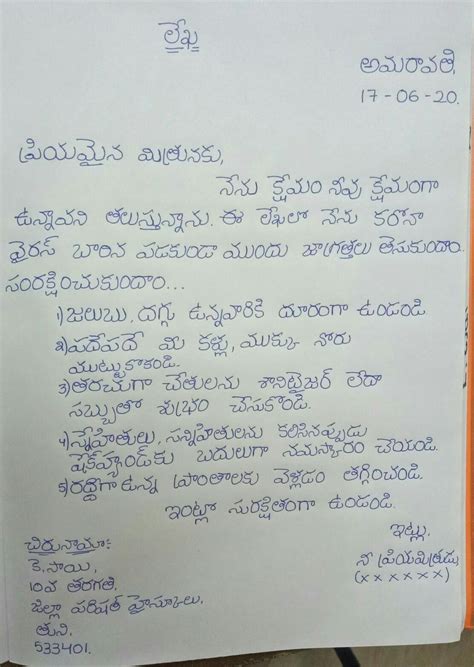 లేఖ
అమరావతి,
17-06-20.
ప్రియమైన మిత్రునకు,
నేను క్షేమం నీవు క్షేమంగా
ఉన్నావని తలుస్తున్నాను. ఈ లేఖలో నేను కరోనా
వైరస్ బారిన పడకుండా ముందు జాగ్రత్తలు తెసుకుందాం
సంరక్షించుకుందాం...
1) జలుబు, దగ్గు ఉన్నవారికి దూరంగా ఉండండి
2) పదేపదే మీ కళ్లు, ముక్కు నోరు
ముట్టుకొకండి.
3) తరచుగా చేతులను శానిటైజర్ లేదా
సబ్బుతో శుభ్రం చేసుకొండి.
4) స్నేహితులు, సన్నిహితులను కలిసినప్పుడు
షేక్‌హ్యాండ్‌కు బదులుగా నమస్కారం చెయండి.
5) రద్దీగా ఉన్న ప్రాంతాలకు వెళ్లడం తగ్గించండి.
ఇంట్లో సురక్షితంగా ఉండండి.
ఇట్లు,
నీ ప్రియమిత్రుడు,
(x x x x x x)
చిరునామా:
కె. సాయి,
10వ తరగతి,
జిల్లా పరిషత్ హైస్కూలు,
తుని,
533401.